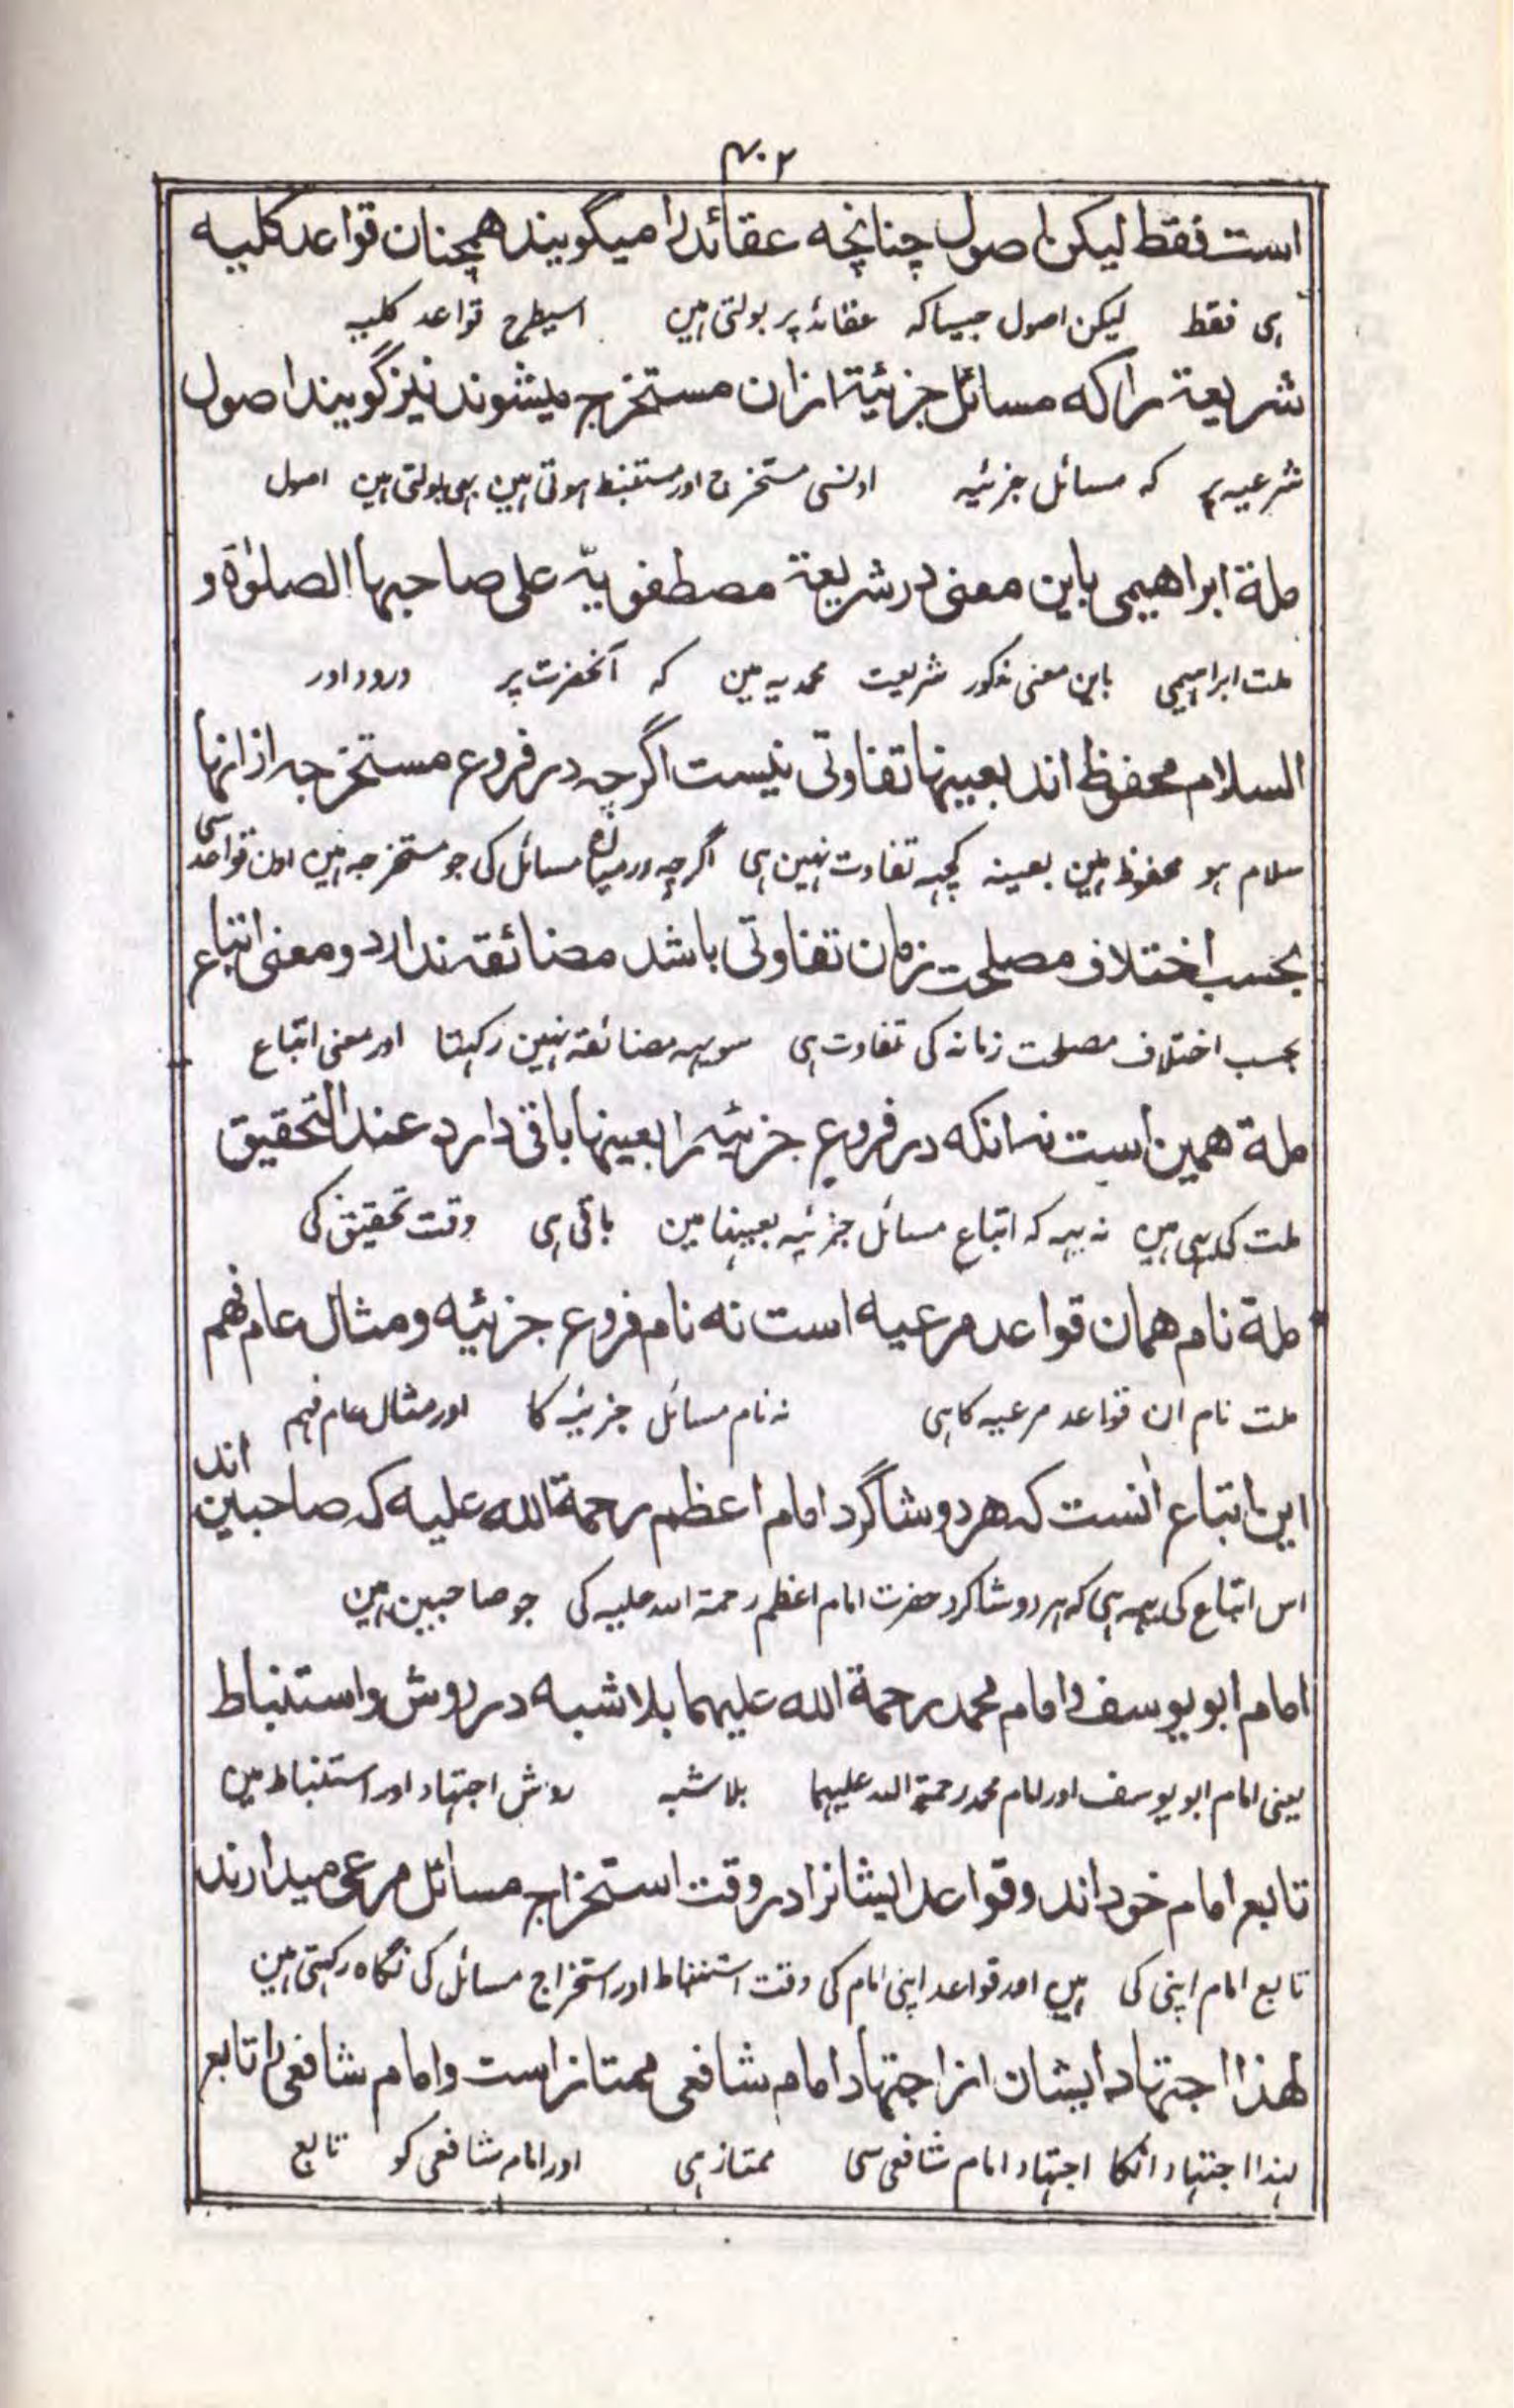 ۴۰۲
است فقط لیکن اصول چنانچه عقائد را میگویند همچنان قواعد کلیه
ہی فقط لیکن اصول جیسا کہ عقائد پر بولتی ہین اسیطرح قواعد کلیہ
شریعة را که مسائل جزئیة ازان مستخرج میشوند نیز گویند اصول
شرعیہ پر کہ مسائل جزئیہ اونسی مستخرج اور مستنبط ہوتی ہین بھی بولتی ہین اصول
ملة ابراهیمی باین معنی در شریعة مصطفویّه علی صاحبها الصلوٰة و
ملت ابراہیمی باین معنی مذکور شریعت محمدیہ مین کہ آنحضرت پر درود اور
السلام محفوظ اند بعینها تفاوتی نیست اگرچه در فروع مستخرجه از انها
سلام ہو محفوظ ہین بعینہ کچہہ تفاوت نہین ہی اگرچہ درمیان مسائل کی جو مستخرجہ ہین اون قواعد سی
بحسب اختلاف مصلحت زمان تفاوتی باشد مضائقه ندارد و معنی اتباع
بحسب اختلاف مصلحت زمانہ کی تفاوت ہی سو یہہ مضائقہ نہین رکہتا اور معنی اتباع
ملة همین است نه انکه در فروع جزئیه را بعینها باقی دارد عند التحقیق
ملت کی یہی ہین نہ یہہ کہ اتباع مسائل جزئیہ بعینہا مین باقی ہی وقت تحقیق کی
ملة نام همان قواعد مرعیه است نه نام فروع جزئیه و مثال عام فهم
ملت نام ان قواعد مرعیہ کا ہی نہ نام مسائل جزئیہ کا اور مثال عام فہم
این اتباع انست که هر دو شاگرد امام اعظم رحمة الله علیه که صاحبین اند
اس اتباع کی یہہ ہی کہ ہر دو شاکرد حضرت امام اعظم رحمة اللہ علیہ کی جو صاحبین ہین
امام ابو یوسف و امام محمد رحمة الله علیهما بلا شبه در روش و استنباط
یعنی امام ابو یوسف اور امام محمد رحمة اللہ علیہما بلا شبہ روش اجتہاد اور استنباط مین
تابع امام خود اند و قواعد ایشانرا در وقت استخراج مسائل مرعی میدارند
تابع امام اپنی کی ہین اور قواعد اپنی امام کی وقت استنباط اور استخراج مسائل کی نگاہ رکہتی ہین
لهذا اجتهاد ایشان از اجتهاد امام شافعی ممتاز است و امام شافعی را تابع
لہذا اجتہاد انکا اجتہاد امام شافعی سی ممتاز ہی اور امام شافعی کو تابع